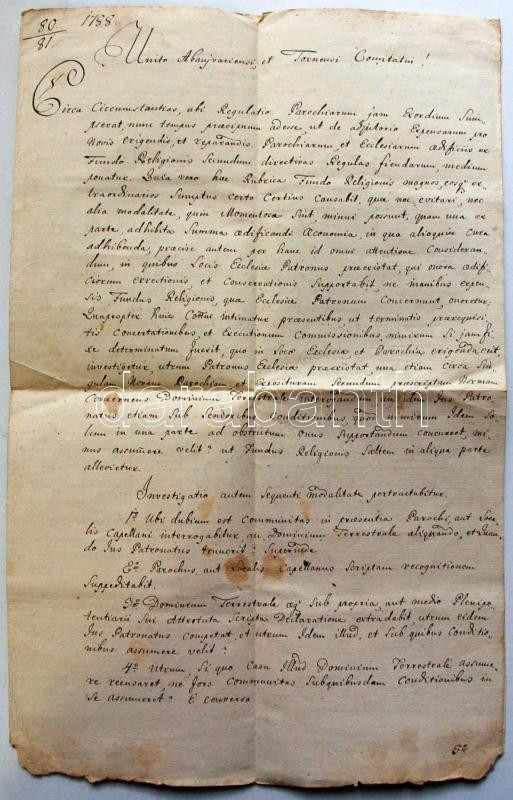 80
81
1788
Unito Abaujvariensi, et Tornensi Comitatui!
Circa Circumstantias, ubi Regulatio Parochiarum jam Exordium Sum-
pserat, nunc tempus praecipuum adesse, ut de adjutorio Expensarum pro
Novis erigendis, et reparandis Parochiarum, et Ecclesiarum aedificiis ex
Fundo Religionis Secundum directivas Regulas fiendarum, medium
ponatur. Quia vero haec Rubrica Fundo Religionis magnos, eosq ex
traordinarios Sumptus certo Certius Causabit, qua non evitari, nec
alia modalitate, quin Momentosa Sint, minui possunt, quam una ex
parte, adhibita Summa aedificandi Oeconomia, in qua alioquin Cura
adhibenda, praecise autem per hanc id omni attentione Consideran
dum, in quibus Locis Ecclesiae Patronus praeexistat, qui onera aedifi
ciorum errectionis et Conservationis Supportabit, ne manibus expen
sis Fundus Religionis, qua Ecclesiae Patronum Concernunt, oneretur.
Quapropter huic Cottui intimatur praesentibus ut terminatis praerequisi
tis Concertationibus, et Executionum Commissionibus, nimirum Si jam fi
xe determinatum fuerit, quo in Loco Ecclesia et Parochia erigenda erit,
investigetur, utrum Patronus Ecclesiae praeexistat, una etiam Circa Sin
gulam Novam Parochiam et Exposituram Secundum praescriptam Normam
Concernens Dominium Terrestrale
Jus Patro
natus etiam Sub Senioribus Conditionibus, quod nimirum Idem So
lum in una parte ad obstrictum Onus Supportandum Concurret, mi
nus assumere velit? ut Fundus Religionis Saltem in aliqua parte
allevietur.
Investigatio autem Sequenti modalitate pertractabitur.
1o Ubi dubium est Communitas in praesentia Parochi, aut Loca
lis Capellani interrogabitur an Dominium Terrestrale aliquando, et quan
do Jus Patronatus tenuerit? Superinde
2o Parochus, aut Localis Capellanus Scriptam recognitionem
Suppeditabit.
3o Dominium Terrestrale aeq Sub propria, aut medio Plenipo
tentiarii Sui Attertata Scripta Declaratione extradabit, utrum eidem
Jus Patronatus Competat, et utrum Idem illud, et Sub quibus Conditio
nibus assumere velit?
4o Utrum, Si quo Casu Illud Dominium Terrestrale assume
re recusaret, ne fors Communitas Subquibusdam Conditionibus in
Se assumeret? E converso
5o
darabanth